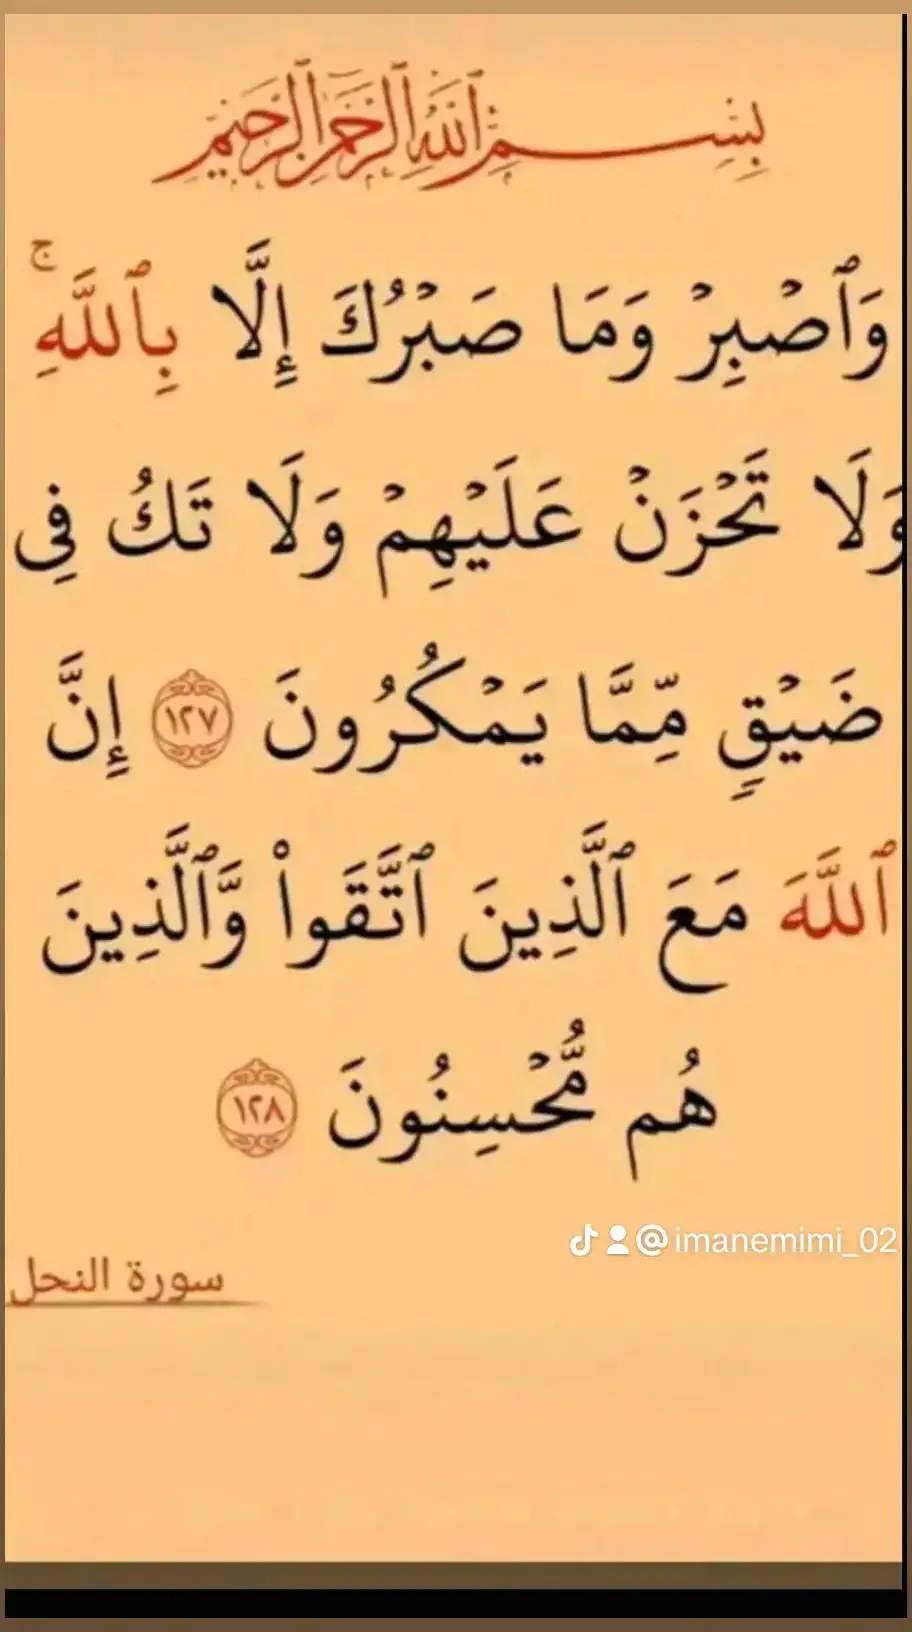 بِسْمِ ٱللَّهِ ٱلرَّحْمَٰنِ ٱلرَّحِيمِ
وَٱصۡبِرۡ وَمَا صَبۡرُكَ إِلَّا بِٱللَّهِۚ
وَلَا تَحۡزَنۡ عَلَيۡهِمۡ وَلَا تَكُ فِي
ضَيۡقٖ مِّمَّا يَمۡكُرُونَ ١٢٧ إِنَّ
ٱللَّهَ مَعَ ٱلَّذِينَ ٱتَّقَواْ وَّٱلَّذِينَ
هُم مُّحۡسِنُونَ ١٢٨
@imanemimi_02
سورة النحل